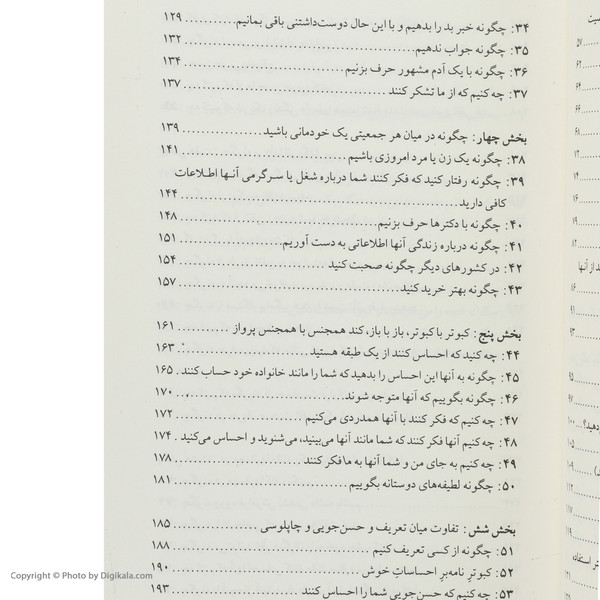 ۳۴: چگونه خبر بد را بدهیم و با این حال دوست‌داشتنی باقی بمانیم............ ۱۲۹
۳۵: چگونه جواب ندهیم............ ۱۳۲
۳۶: چگونه با یک آدم مشهور حرف بزنیم............ ۱۳۴
۳۷: چه کنیم که از ما تشکر کنند............ ۱۳۷
بخش چهار: چگونه در میان هر جمعیتی یک خودمانی باشید............ ۱۳۹
۳۸: چگونه یک زن یا مرد امروزی باشیم............ ۱۴۱
۳۹: چگونه رفتار کنید که فکر کنند شما درباره شغل یا سرگرمی آنها اطلاعات
کافی دارید............ ۱۴۴
۴۰: چگونه با دکترها حرف بزنیم............ ۱۴۸
۴۱: چگونه درباره زندگی آنها اطلاعاتی به دست آوریم............ ۱۵۱
۴۲: در کشورهای دیگر چگونه صحبت کنید............ ۱۵۴
۴۳: چگونه بهتر خرید کنید............ ۱۵۷
بخش پنج: کبوتر با کبوتر، باز با باز، کند همجنس با همجنس پرواز............ ۱۶۱
۴۴: چه کنید که احساس کنند از یک طبقه هستید............ ۱۶۳
۴۵: چگونه به آنها این احساس را بدهید که شما را مانند خانواده خود حساب کنند. ۱۶۵
۴۶: چگونه بگوییم که آنها متوجه شوند............ ۱۷۰
۴۷: چه کنیم که فکر کنند با آنها همدردی می‌کنیم............ ۱۷۲
۴۸: چه کنیم آنها فکر کنند که شما مانند آنها می‌بینید، می‌شنوید و احساس می‌کنید. ۱۷۴
۴۹: چه کنیم به جای من و شما آنها به ما فکر کنند............ ۱۷۸
۵۰: چگونه لطیفه‌های دوستانه بگوییم............ ۱۸۱
بخش شش: تفاوت میان تعریف و حسن‌جویی و چاپلوسی............ ۱۸۵
۵۱: چگونه از کسی تعریف کنیم............ ۱۸۸
۵۲: کبوترِ نامه‌برِ احساساتِ خوش............ ۱۹۰
۵۳: چه کنیم که حسن‌جویی شما را احساس کنند............ ۱۹۳
Copyright © Photo by Digikala.com